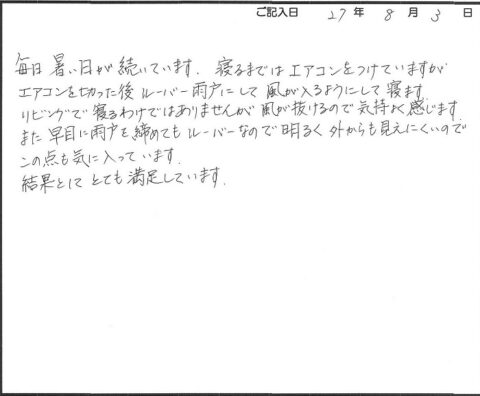 ご記入日 27年 8月 3日
毎日暑い日が続いています。寝るまではエアコンをつけていますが
エアコンを切った後ルーバー雨戸にして風が入るようにして寝ます
リビングで寝るわけではありませんが風が抜けるので気持よく感じます。
また早目に雨戸を締めてもルーバーなので明るく外からも見えにくいので
この点も気に入っています。
結果としてとても満足しています。